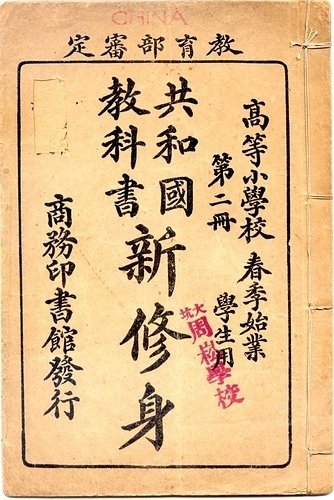 CHINA
教育部審定
高等小學校 春季始業
第二冊 學生用
共和國
教科書
新修身
商務印書館發行
大坑
周崧學校